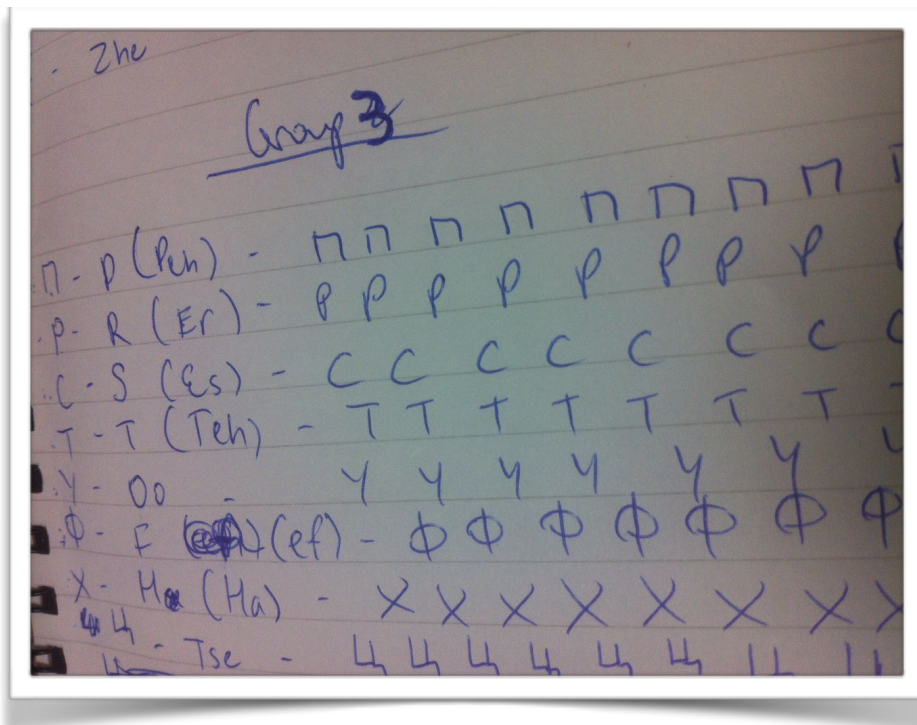 - Zhe
Group 3
П - P (Peh) - П П П П П П П П
Р - R (Er) - Р Р Р Р Р Р Р Р
С - S (Es) - С С С С С С С С
Т - T (Teh) - Т Т Т Т Т Т Т
У - Oo - У У У У У У
Ф - F (ef) - Ф Ф Ф Ф Ф Ф Ф
Х - H (Ha) - Х Х Х Х Х Х Х Х
Ц - Tse - Ц Ц Ц Ц Ц Ц Ц